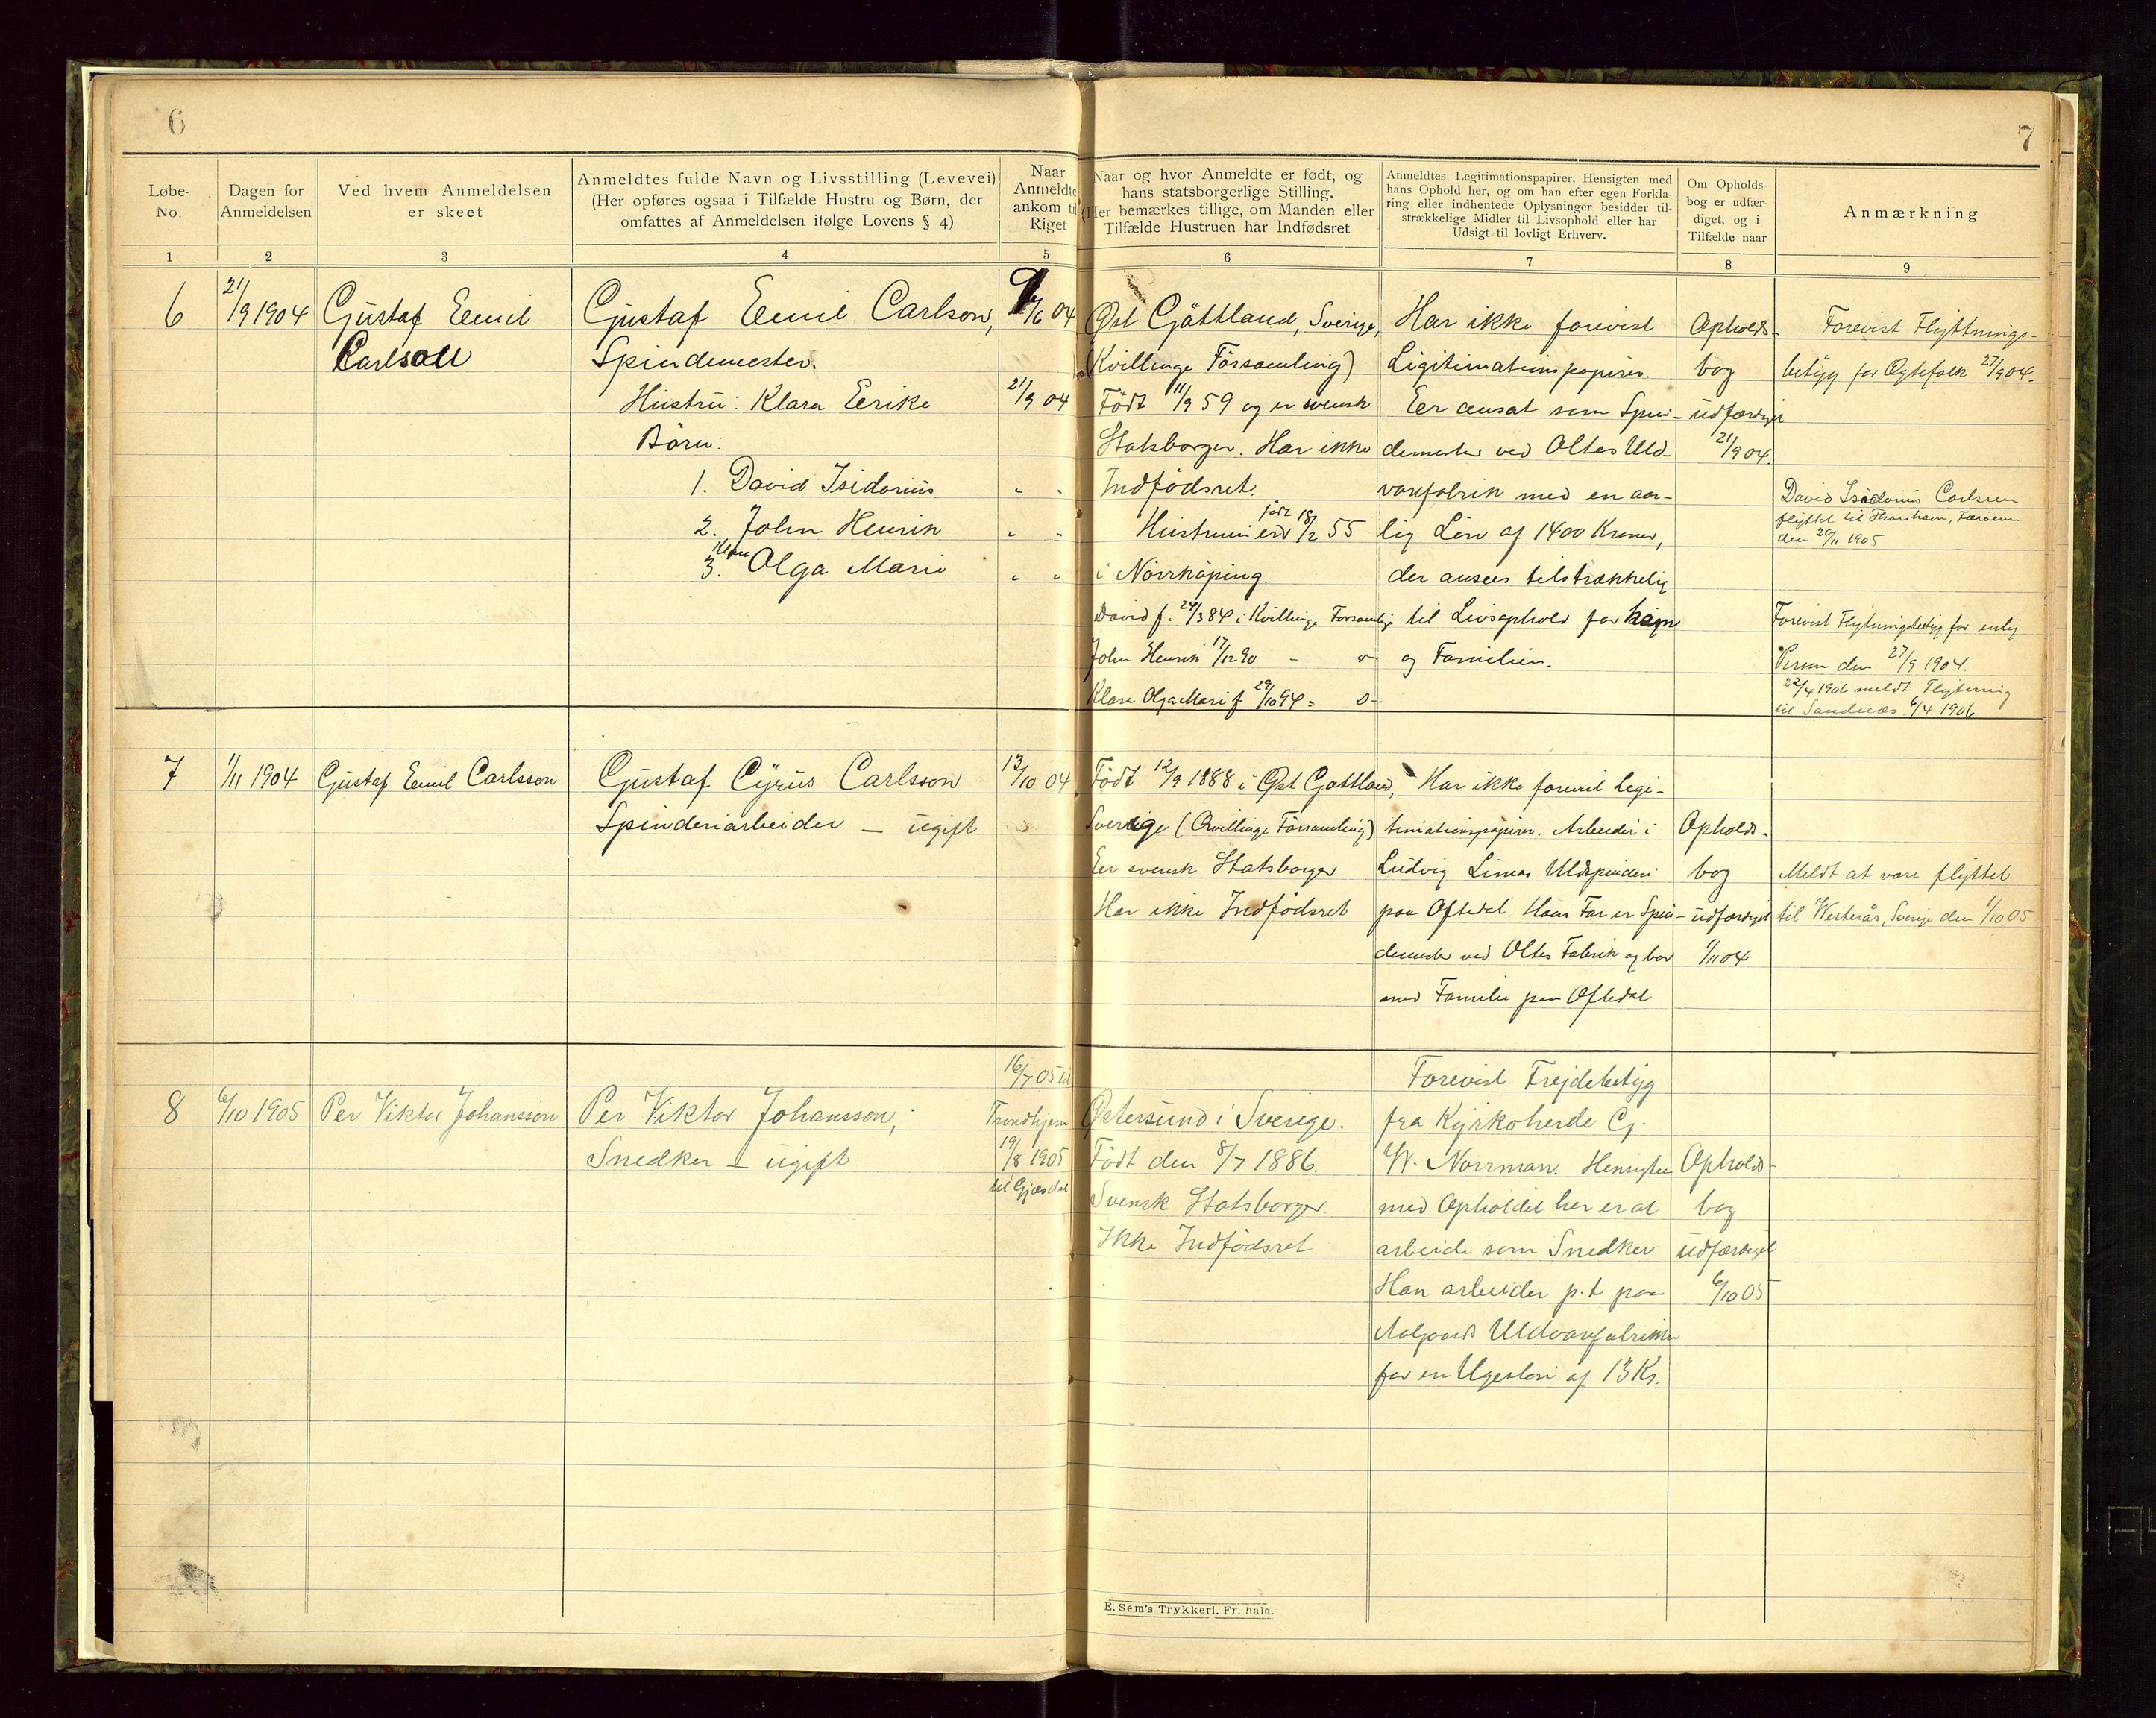 6
7
Løbe-
No.
Dagen for
Anmeldelsen
Ved hvem Anmeldelsen
er skeet
Anmeldtes fulde Navn og Livsstilling (Levevei)
(Her opføres ogsaa i Tilfælde Hustru og Børn, der
omfattes af Anmeldelsen ifølge Lovens § 4)
Naar
Anmeldte
ankom til
Riget
Naar og hvor Anmeldte er født, og
hans statsborgerlige Stilling.
(Her bemærkes tillige, om Manden eller
Tilfælde Hustruen har Indfødsret
Anmeldtes Legitimationspapirer, Hensigten med
hans Ophold her, og om han efter egen Forkla-
ring eller indhentede Oplysninger besidder til-
strækkelige Midler til Livsophold eller har
Udsigt til lovligt Erhverv.
Om Opholds-
bog er udfær-
diget, og i
Tilfælde naar
Anmærkning
1 2 3 4 5 6 7 8 9
6
21/9 1904
Gustaf Emil
Carlson
Gustaf Emil Carlson,
Spindemester.
Hustru: Klara Erike
Börn:
1. David Isidorius
2. John Henrik
Klara
3. Olga Marie
/6 04
21/9 04
Øst Gøttland, Sverige,
(Kvillinge Församling)
Födt 11/9 59 og er svensk
Statsborger. Har ikke
Indfödsret.
Hustruen er födt 18/2 55
i Norrköping.
David f. 24/3 84 i Kvillinge Forsamling
John Henrik 17/12 90 -
Klara Olga Mari f. 29/10 94
Har ikke forevist
Legitimationspapirer.
Er ansat som Spin-
demester ved Oltes Uld-
varefabrik med en aar-
lig Lön af 1400 Kroner,
der ansees tilstrækkelig
til Livsophold for ham
og Familien.
Opholds-
bog
udfærdiget
21/9 04.
Forevist Flyttnings-
betyg for Ægtefolk 27/9 04.
David Isidorius Carlsson
flyttet til Thorshavn, Færöerne
den 20/11 1905
Forevist Flytningsbetyg for enlig
Person den 27/9 1904.
22/4 1906 meldt Flytning
til Sandnæs 6/4 1906
7
1/11 1904
Gustaf Emil Carlsson
Gustaf Cyrus Carlsson
Spinderiarbeider — ugift
13/10 04
Födt 12/9 1888 i Øst Gottland,
Sverige (Qvillinge Församling)
Er svensk Statsborger.
Har ikke Indfödsret
Har ikke forevist Legi-
timationspapirer. Arbeider i
Ludvig Limas Uldspinderi
paa Oftedal. Hans Far er Spin-
demester ved Oltes Fabrik og bor
med Familie paa Oftedal
Opholds-
bog
udfærdiget
1/11 04
Meldt at være flyttet
til Westerås, Sverige den 1/10 05
8
6/10 1905
Per Viktor Johansson
Per Viktor Johansson,
Snedker — ugift
16/7 05 til
Trondhjem
19/8 1905
til Gjæsdal
Østersund i Sverige.
Födt den 8/7 1886.
Svensk Statsborger.
Ikke Indfödsret
Forevist Frejdebetyg
fra Kyrkoherde G.
W. Norrman. Hensigten
med Opholdet her er at
arbeide som Snedker.
Han arbeider p.t. paa
Aalgaards Uldvarefabrikker
for en Ugelön af 13 Kr.
Opholds-
bog
udfærdiget
6/10 05
E. Sem's Trykkeri. Fr. hald.